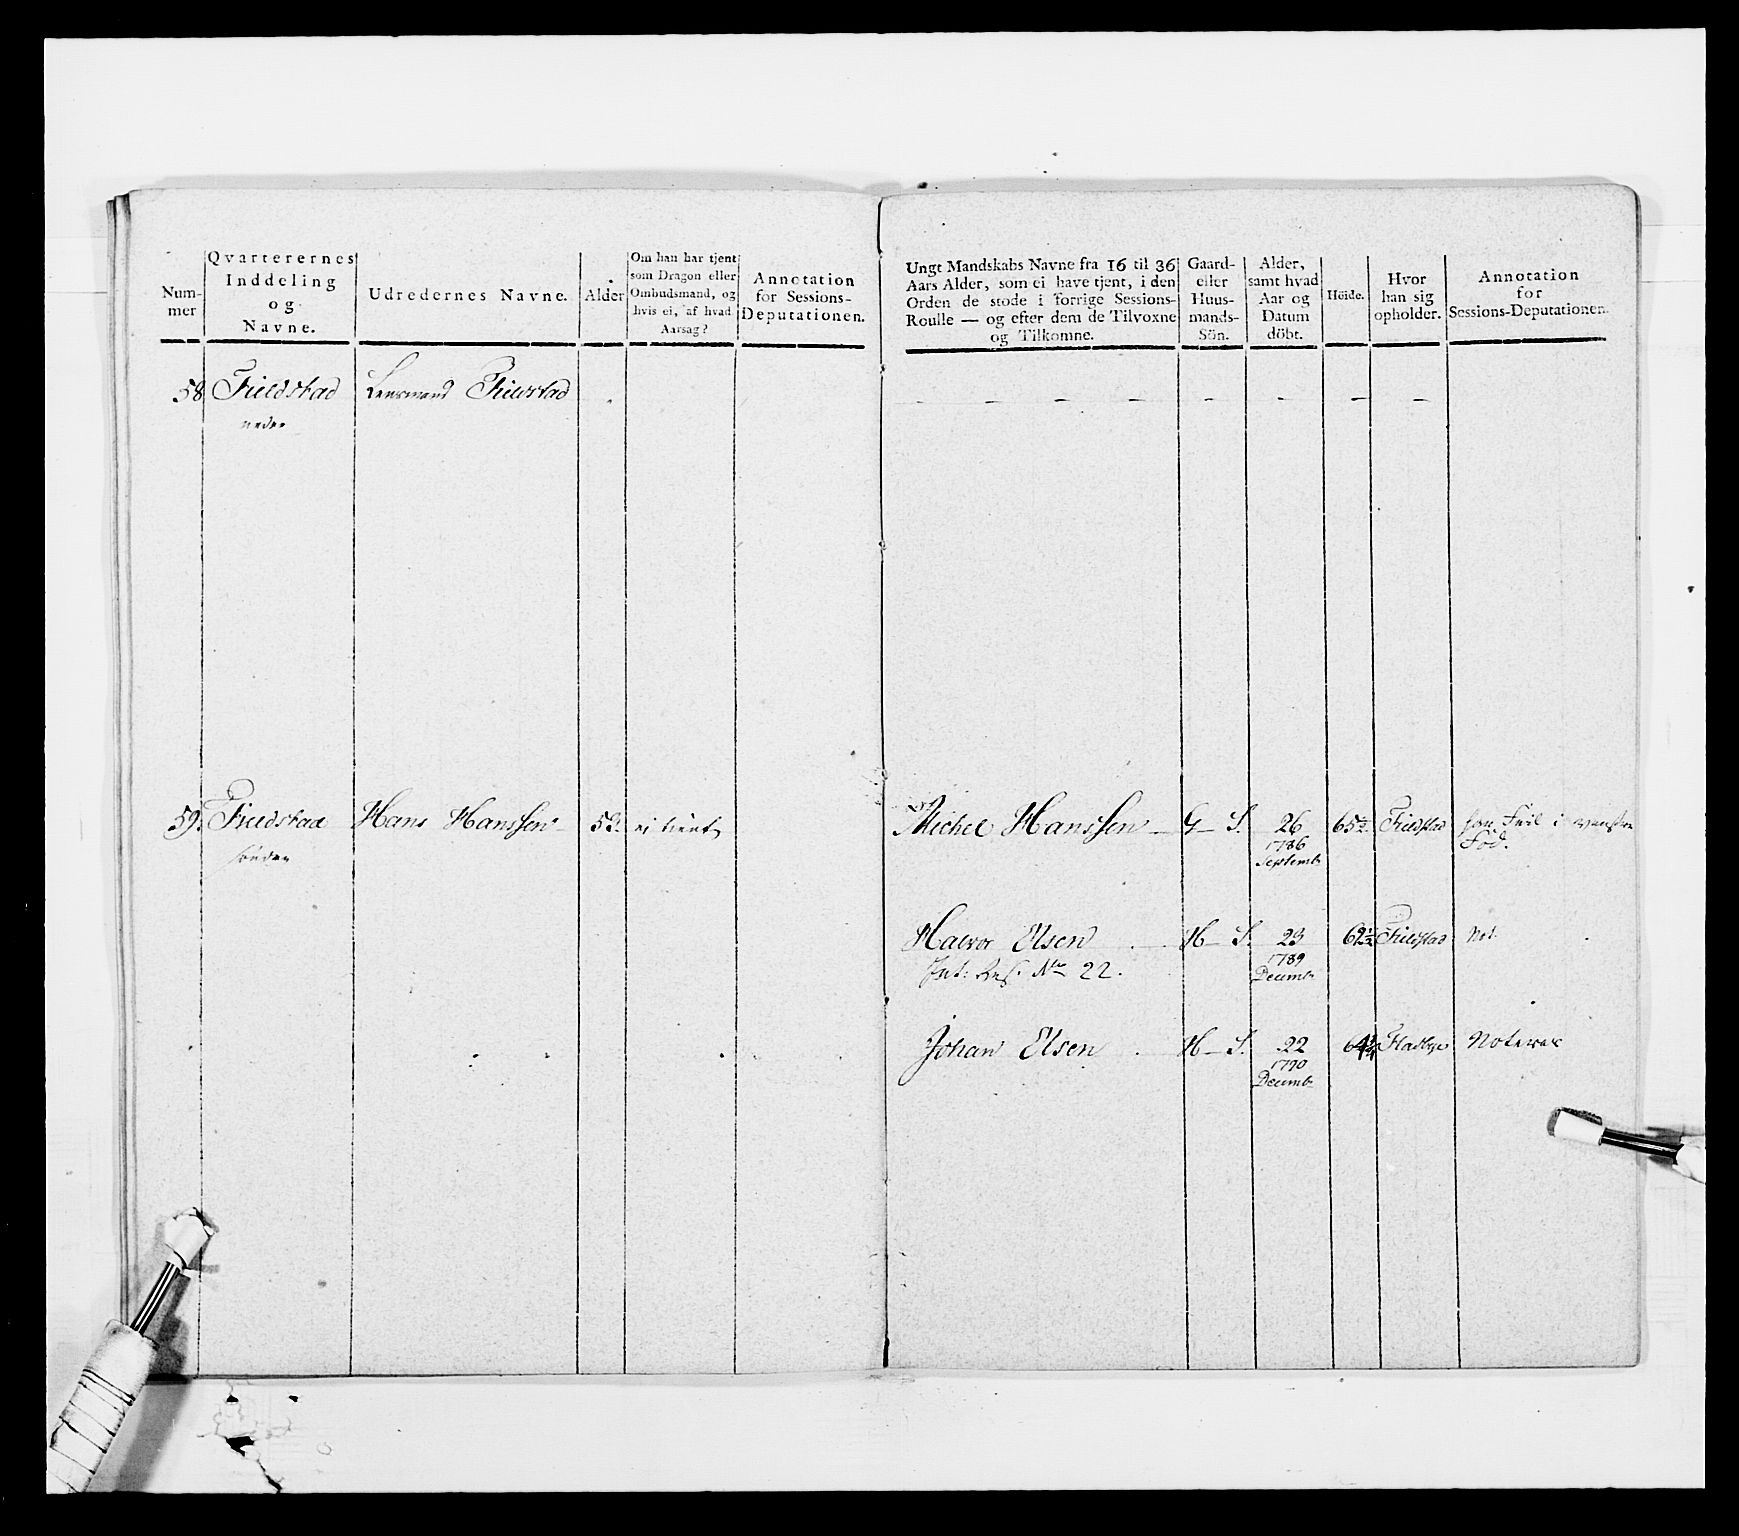 Num-
mer
Qvarterernes
Inddeling
og
Navne.
Udredernes Navne.
Alder
Om han har tjent
som Dragon eller
Ombudsmand, og
hvis ei, af hvad
Aarsag?
Annotation
for Sessions-
Deputationen.
58 Fieldstad Lensmand Fieldstad
neder
59. Fieldstad Hans Hanssen 53. ei tient
søndre
Ungt Mandskabs Navne fra 16 til 36
Aars Alder, som ei have tjent, i den
Orden de stode i forrige Sessions-
Roulle — og efter dem de Tilvoxne
og Tilkomne.
Gaard-
eller
Huus-
mands-
Sön.
Alder,
samt hvad
Aar og
Datum
döbt.
Höide.
Hvor
han sig
opholder.
Annotation
for
Sessions-Deputationen.
— — — — — — — —
Michel Hanssen G — S. 26 65½ Fieldstad har Feil i venstre
1786 Fod.
Septemb
Halvor Elsen H — S. 23 Fieldstad Not
Int: Res. No 22. 1789
Decemb
Johan Elsen H — S. 22 Fladbye Noteres
1790
Decemb